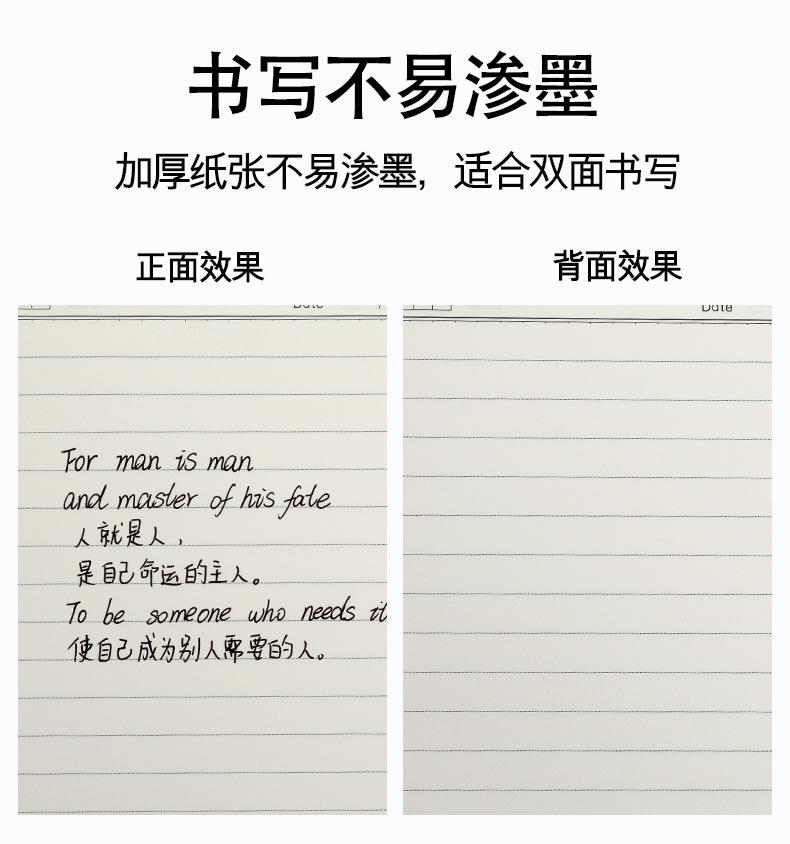 书写不易渗墨
加厚纸张不易渗墨，适合双面书写
正面效果
背面效果
Date
Date
For man is man
and master of his fate
人就是人，
是自己命运的主人。
To be someone who needs it
使自己成为别人需要的人。